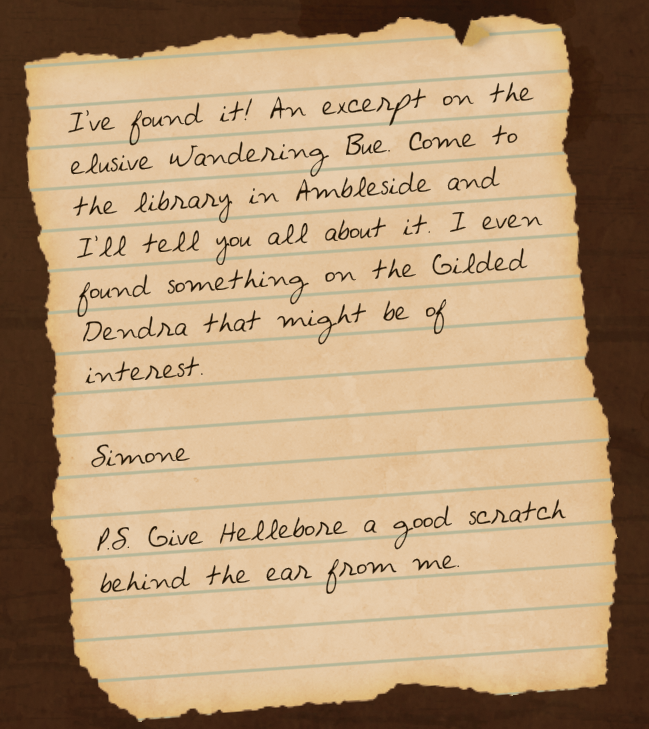 I've found it! An excerpt on the
elusive Wandering Bue. Come to
the library in Ambleside and
I'll tell you all about it. I even
found something on the Gilded
Dendra that might be of
interest.
Simone
P.S. Give Hellebore a good scratch
behind the ear from me.